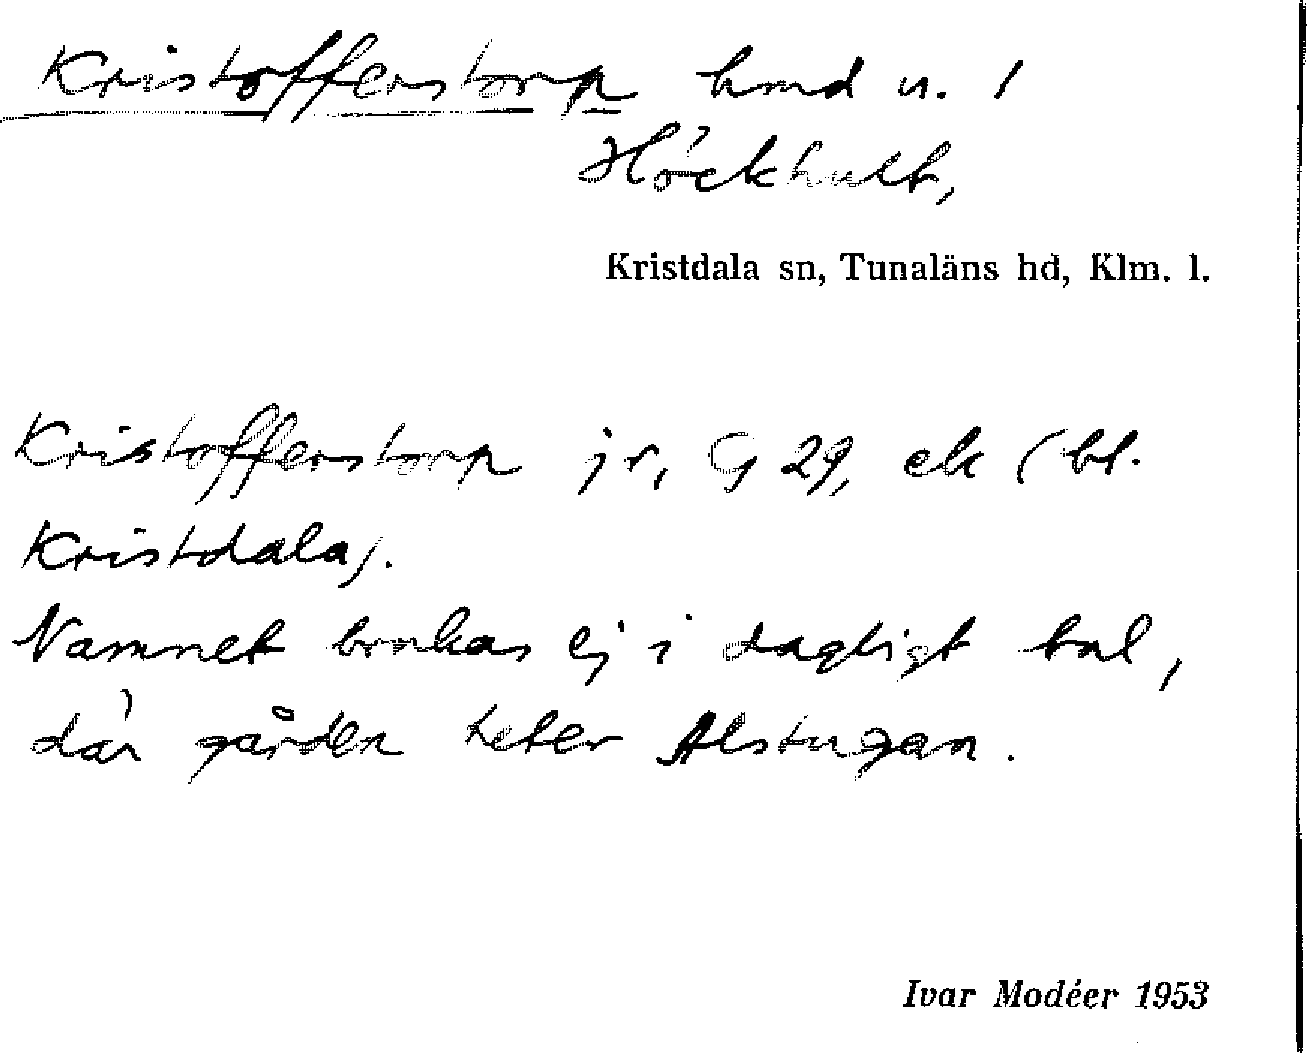 Kristofferstorp hmd u. 1
Höckhult,
Kristdala sn, Tunaläns hd, Klm. l.
Kristofferstorp jr, G 29, ek (bl.
Kristdala).
Namnet brukas ej i dagligt tal,
där gården heter Alstugan.
Ivar Modéer 1953